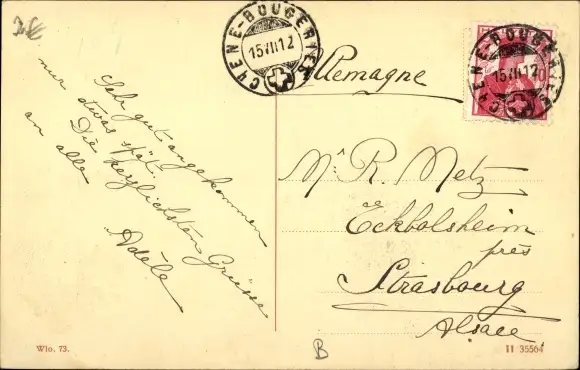 CHÊNE-BOUGERIES
15.VII.12
CHÊNE-BOUGERIES
15.VII.12
10
Allemagne
Sehr gut angekommen
nur etwas spät.
Die herzlichsten Grüsse
an alle
Adèle
Mr R. Metz
Eckbolsheim
près
Strasbourg
Alsace.
Wlo. 73.
B
11 35564